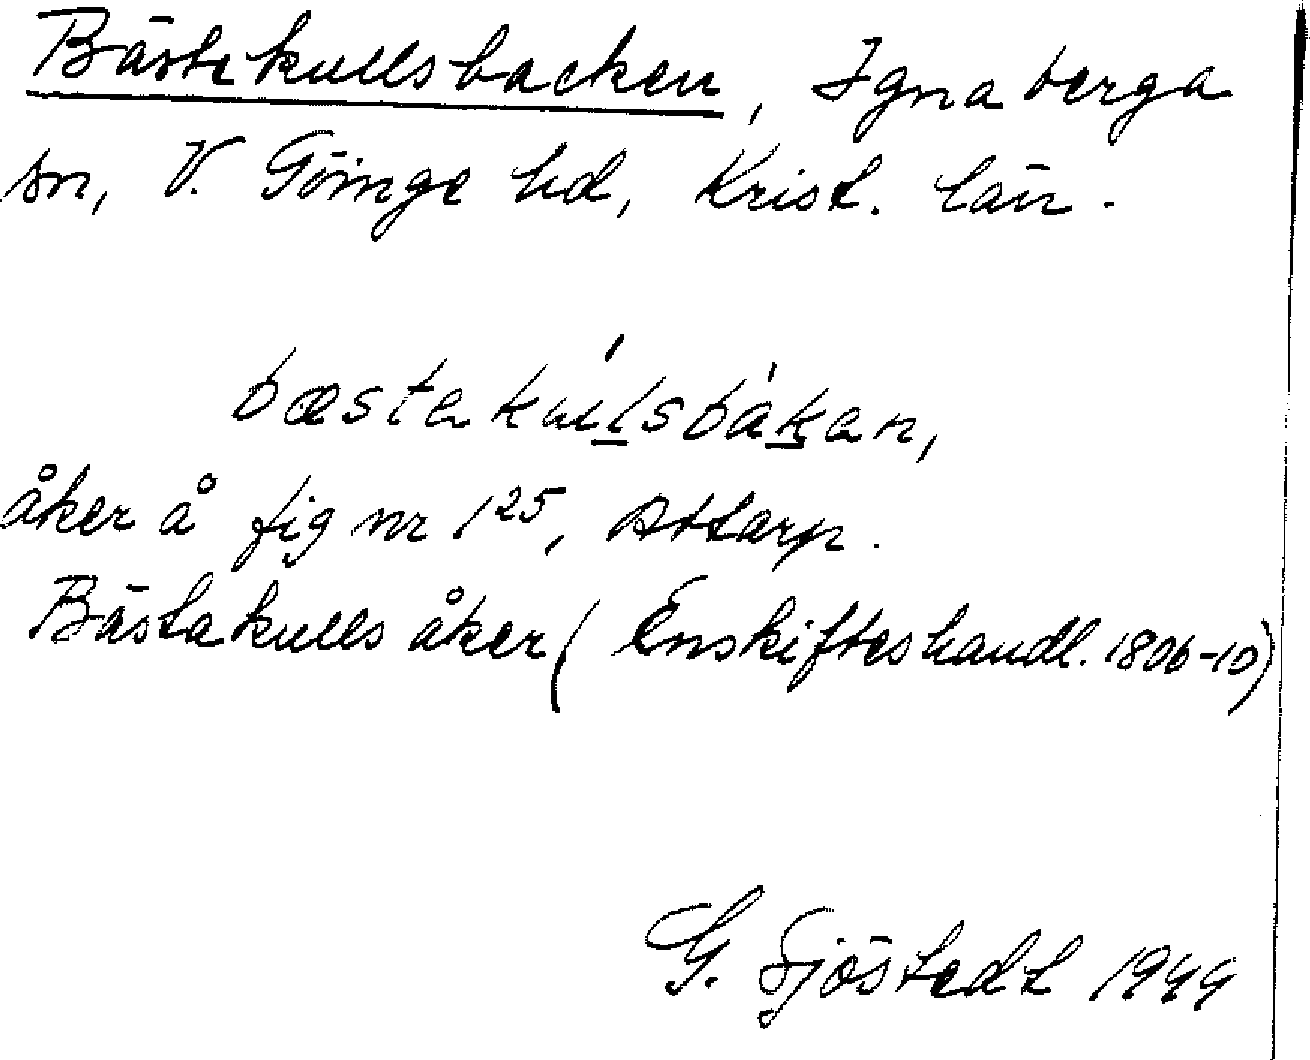 Bästekullsbacken, Ignaberga
sn, V. Göinge hd, Krist. län.
bæstekul̲sbák̲an,
åker å fig nr 125, Attarp.
Bästakulls åker (Enskifteshandl. 1806-10)
G. Sjöstedt 1944